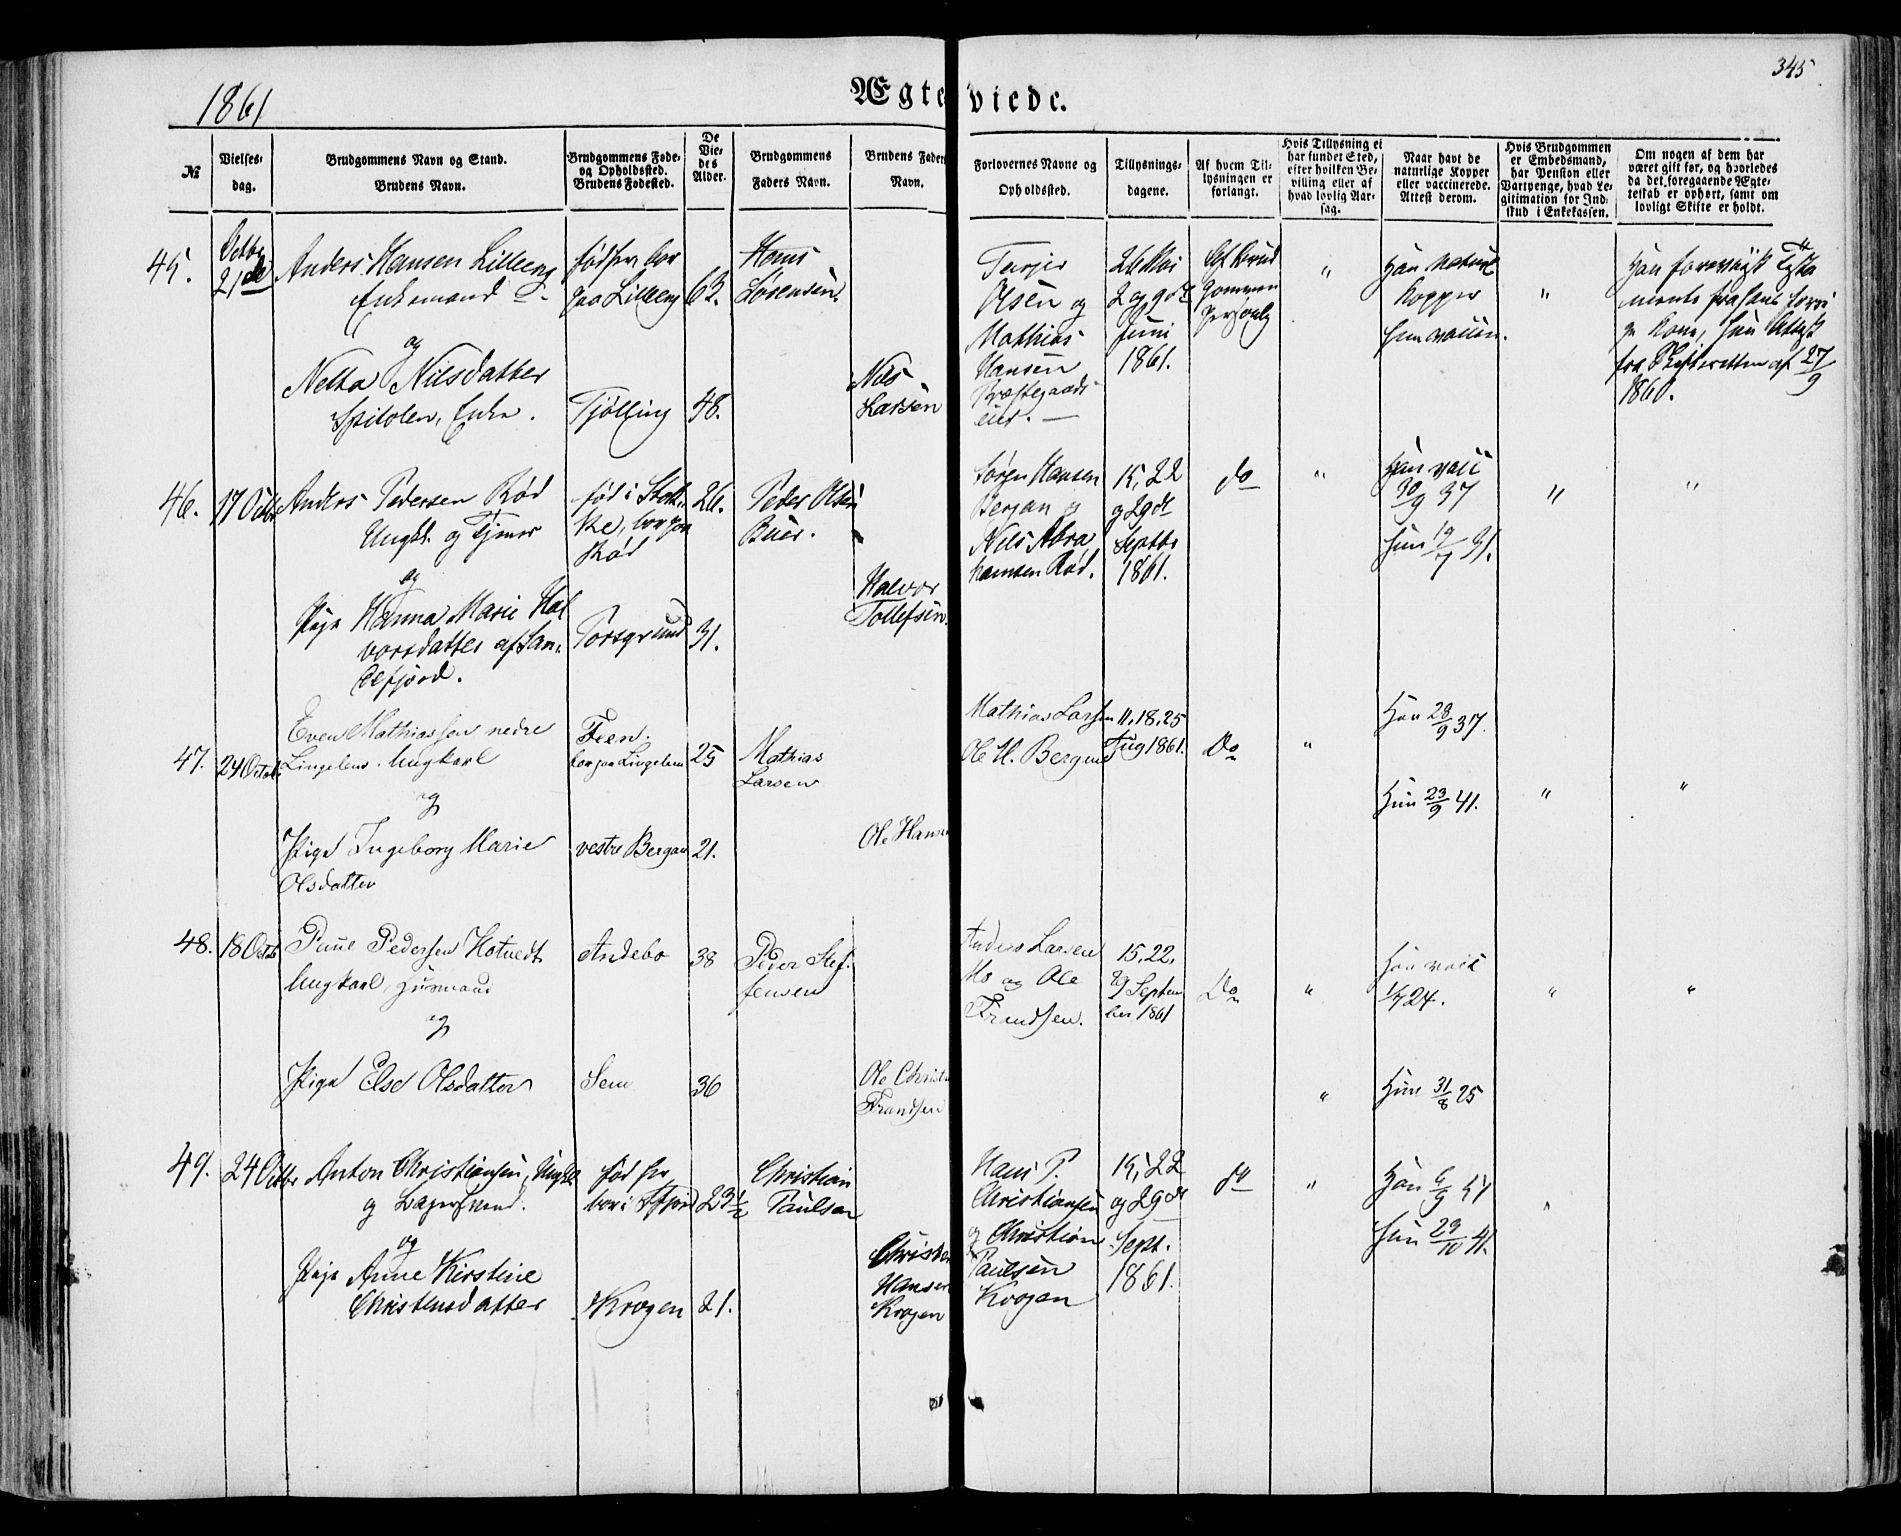 345
1861
Ægteviede.
№
Vielses-
dag.
Brudgommens Navn og Stand.
Brudens Navn.
Brudgommens Føde-
og Opholdssted.
Brudens Fødested.
De
Vie-
des
Alder.
Brudgommens
Faders Navn.
Brudens Faders
Navn.
Forlovernes Navne og
Opholdssted.
Tillysnings-
dagene.
Af hvem Til-
lysningen er
forlangt.
Hvis Tillysning ei
har fundet Sted,
efter hvilken Be-
villing eller af
hvad lovlig Aar-
sag.
Naar havt de
naturlige Kopper
eller vaccinerede.
Attest derom.
Hvis Brudgommen
er Embedsmand,
har Pension eller
Vartpenge, hvad Le-
gitimation for Ind-
skud i Enkekassen.
Om nogen af dem har
været gift før, og hvorledes
da det foregaaende Ægte-
teskab er ophørt, samt om
lovligt Skifte er holdt.
45.
Octbr
21de
Anders Hansen Lilleeng
Enkemand
og
Nilsdatter
Enke.
født bor
paa Lilleeng
Tjølling
63.
48.
Hans
Sørensen.
Nils
Larsen
Terjer
Olsen og
Mathias
Hansen
Præstegaards
eier.
26 Mai
2 og 9de
Juni
1861.
Af Brud
gommen
personlig
"
Han naturl
Kopper
Hun vaccin.
"
Han foreviist Testa
mente fra hans forri
ge Kone, Hun Attest
fra Skifteretten af 27/9
1860.
46.
17 Octbr
Anders Pedersen Rød
Ungk. og Tjener
og
Pige Hanna Marie Hal
vorsdatter af San-
defjord.
født i Stok-
ke, bor paa
Rød
Porsgrund
26.
31.
Peder Olsen
Buer.
Halvor
Tollefsen.
Sørgen Hansen
Bergan og
Nils Abra
hamsen Rød.
15, 22
og 29de
Septbr
1861.
do
"
Han vacc
30/9 37
Hun 19/7 31.
"
"
47.
24 Octob.
Even Mathiassen nedre
Lingelem. Ungkarl
og
Pige Ingeborg Marie
Olsdatter
Feen.
bor paa Lingelem
vestre Bergan
25
21.
Mathias
Larsen
Ole Hansen
Mathias Larsen
Ole H. Bergan
11, 18, 25
Aug 1861.
Do
"
Han 28/9 37.
Hun 23/9 41.
"
"
48.
18 Octob
Paul Pedersen Hotvedt
Ungkarl, Husmand
og
Pige Else Olsdatter
Andebo
Sem
38
36
Peder Stef-
fensen
Ole Christ
Frandsen
Anders Larsen
Mo og Ole
Frandsen.
15, 22,
29 Septem
ber 1861
Do
"
Han vacc
1/7 24.
"
"
"
Hun 31/8 25
49.
24 Octbr
Anton Christiansen, Ungkl
og Bagersvend.
og
Pige Anne Kirstine
Christensdatter
født
bor i
Krogen
23½
21.
Christian
Paulsen
Christen
Hansen
Krogen
Hans P.
Christiansen
og Christian
Paulsen
Krogen
15, 22
og 29de
Sept.
1861.
do
"
Han
Hun 29/10 41.
"